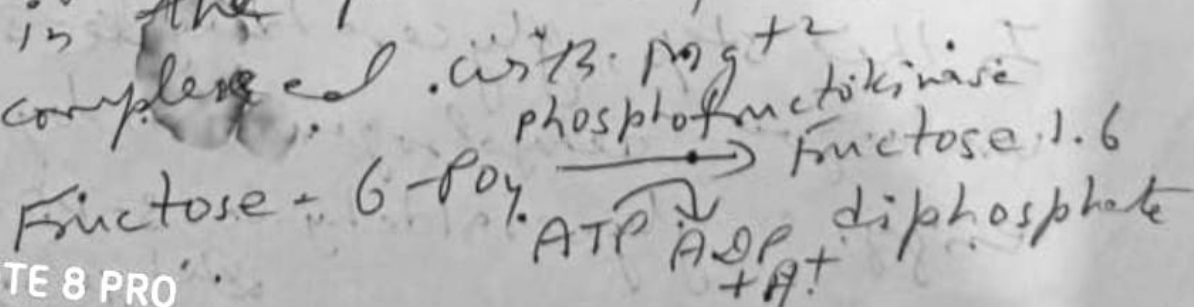 in the
complexed with Mg+2
phosphofructokinase
Fructose - 6 - PO4 ⟶ Fructose 1.6
ATP ADP diphosphate
+ H+
TE 8 PRO